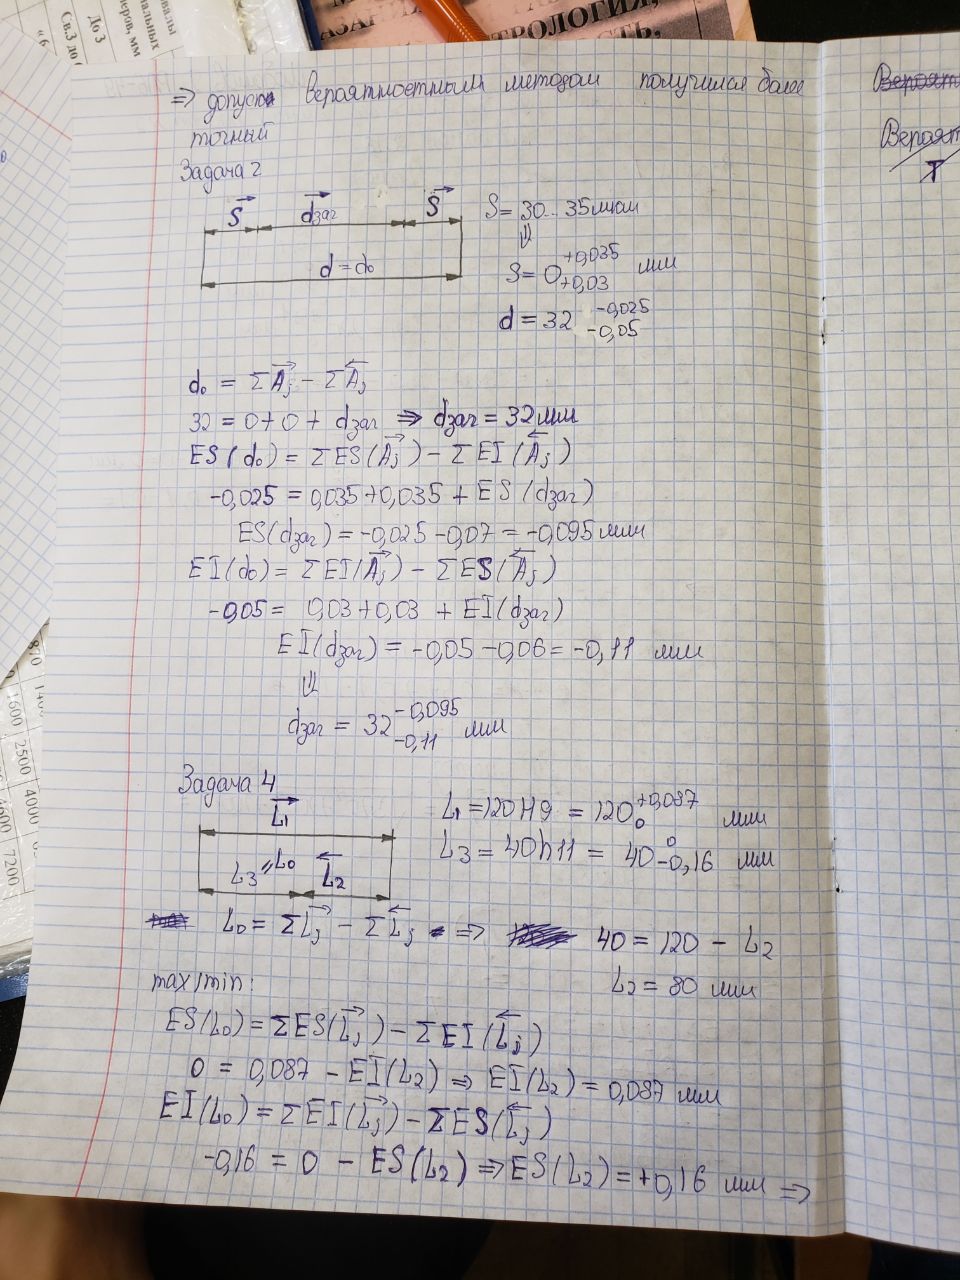 ТРОЛОГИЯ,
До 3
Св.3 до
⇒ допуск вероятностным методом получился более
точный
Задача 2
S→ dзаг→ S→
d = d₀
S = 30...35 мкм
⇓
S = 0 +0,035 +0,03 мм
d = 32 -0,025 -0,05
d₀ = ΣA⃗ⱼ - ΣA⃖ⱼ
32 = 0 + 0 + dзаг ⇒ dзаг = 32 мм
ES(d₀) = ΣES(A⃗ⱼ) - ΣEI(A⃖ⱼ)
-0,025 = 0,035 + 0,035 + ES(dзаг)
ES(dзаг) = -0,025 - 0,07 = -0,095 мм
EI(d₀) = ΣEI(A⃗ⱼ) - ΣES(A⃖ⱼ)
-0,05 = 0,03 + 0,03 + EI(dзаг)
EI(dзаг) = -0,05 - 0,06 = -0,11 мм
⇓
dзаг = 32 -0,095 -0,11 мм
Задача 4
L⃗₁
L₃ = L₀ L⃖₂
L₁ = 120H9 = 120 +0,087 0 мм
L₃ = 40h11 = 40 0 -0,16 мм
L₀ = ΣL⃗ⱼ - ΣL⃖ⱼ ⇒ 40 = 120 - L₂
L₂ = 80 мм
max/min:
ES(L₀) = ΣES(L⃗ⱼ) - ΣEI(L⃖ⱼ)
0 = 0,087 - EI(L₂) ⇒ EI(L₂) = 0,087 мм
EI(L₀) = ΣEI(L⃗ⱼ) - ΣES(L⃖ⱼ)
-0,16 = 0 - ES(L₂) ⇒ ES(L₂) = +0,16 мм ⇒
Вероят
Вероят
T
1500 2500 4000
7200